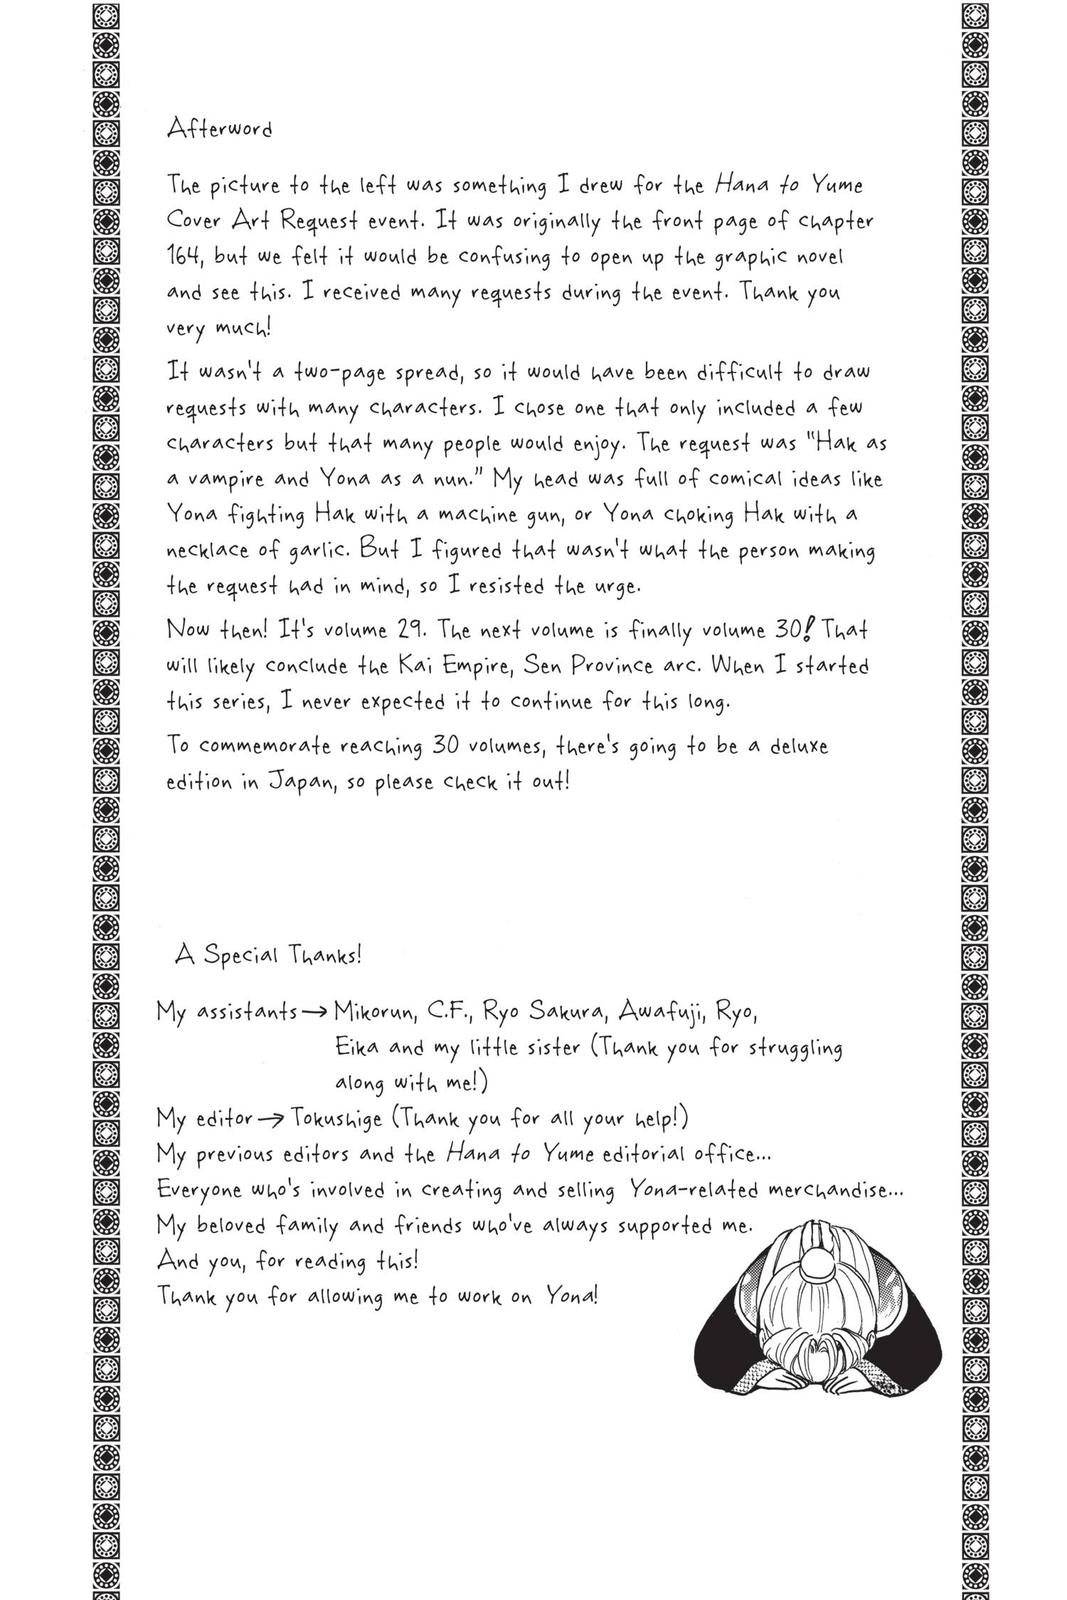 Afterword
The picture to the left was something I drew for the Hana to Yume
Cover Art Request event. It was originally the front page of chapter
164, but we felt it would be confusing to open up the graphic novel
and see this. I received many requests during the event. Thank you
very much!
It wasn't a two-page spread, so it would have been difficult to draw
requests with many characters. I chose one that only included a few
characters but that many people would enjoy. The request was "Hak as
a vampire and Yona as a nun." My head was full of comical ideas like
Yona fighting Hak with a machine gun, or Yona choking Hak with a
necklace of garlic. But I figured that wasn't what the person making
the request had in mind, so I resisted the urge.
Now then! It's volume 29. The next volume is finally volume 30! That
will likely conclude the Kai Empire, Sen Province arc. When I started
this series, I never expected it to continue for this long.
To commemorate reaching 30 volumes, there's going to be a deluxe
edition in Japan, so please check it out!
A Special Thanks!
My assistants→Mikorun, C.F., Ryo Sakura, Awafuji, Ryo,
Eika and my little sister (Thank you for struggling
along with me!)
My editor→Tokushige (Thank you for all your help!)
My previous editors and the Hana to Yume editorial office...
Everyone who's involved in creating and selling Yona-related merchandise...
My beloved family and friends who've always supported me.
And you, for reading this!
Thank you for allowing me to work on Yona!